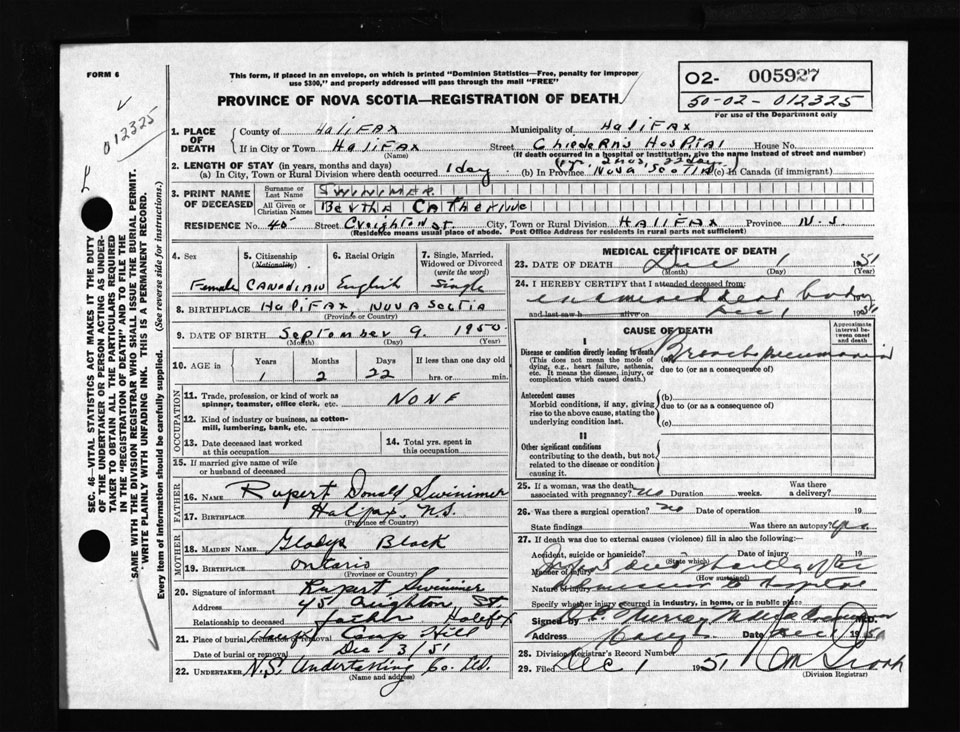 FORM 6
This form, if placed in an envelope, on which is printed "Dominion Statistics—Free, penalty for improper
use $300," and properly addressed will pass through the mail "FREE"
PROVINCE OF NOVA SCOTIA—REGISTRATION OF DEATH
O2- 005927
50-02-012325
For use of the Department only
012325
SEC. 46—VITAL STATISTICS ACT MAKES IT THE DUTY
OF THE UNDERTAKER OR PERSON ACTING AS UNDER-
TAKER TO OBTAIN ALL THE PARTICULARS REQUIRED
IN THE "REGISTRATION OF DEATH" AND TO FILE THE
SAME WITH THE DIVISION REGISTRAR WHO SHALL ISSUE THE BURIAL PERMIT.
WRITE PLAINLY WITH UNFADING INK. THIS IS A PERMANENT RECORD.
Every item of information should be carefully supplied. (See reverse side for instructions.)
1. PLACE OF DEATH
County of HaliFAX Municipality of HaliFAX
If in City or Town HaliFAX Street Chiedern's Hospital House No.
(Name) (If death occurred in a hospital or institution, give the name instead of street and number)
2. LENGTH OF STAY (in years, months and days)
(a) In City, Town or Rural Division where death occurred 1 day (b) In Province Nova Scotia (c) In Canada (if immigrant)
3. PRINT NAME OF DECEASED
Surname or Last Name SWINIMER
All Given or Christian Names Bertha Catherine
RESIDENCE No. 45 Street Creighton St. City, Town or Rural Division HaliFAX Province N.S.
(Residence means usual place of abode. Post Office Address for residents in rural parts not sufficient)
4. Sex Female
5. Citizenship (Nationality) CANADIAN
6. Racial Origin English
7. Single, Married, Widowed or Divorced (write the word) Single
8. BIRTHPLACE HaliFAX, Nova Scotia
(Province or Country)
9. DATE OF BIRTH September 9. 1950
(Month) (Day) (Year)
10. AGE in Years Months Days If less than one day old
1 2 22 hrs. or min.
OCCUPATION
11. Trade, profession, or kind of work as
spinner, teamster, office clerk, etc. NONE
12. Kind of industry or business, as cotton-
mill, lumbering, bank, etc.
13. Date deceased last worked
at this occupation
14. Total yrs. spent in
this occupation
15. If married give name of wife
or husband of deceased
FATHER
16. NAME Rupert Donald Swinimer
17. BIRTHPLACE Halifax, N.S.
(Province or Country)
MOTHER
18. MAIDEN NAME Gladys Black
19. BIRTHPLACE Ontario
(Province or Country)
20. Signature of informant Rupert Swinimer
Address 45 Creighton St.
Relationship to deceased father Halifax
21. Place of burial, cremation or removal Camp Hill
Date of burial or removal Dec 3/51
22. UNDERTAKER N.S. Undertaking Co. Ltd.
(Name and address)
MEDICAL CERTIFICATE OF DEATH
23. DATE OF DEATH Dec 1 1951
(Month) (Day) (Year)
24. I HEREBY CERTIFY that I attended deceased from:
examined dead body
and last saw h alive on Dec 1 1951
CAUSE OF DEATH
Approximate interval between onset and death
I
Disease or condition directly leading to death (a) Bronchopneumonia
(This does not mean the mode of
dying, e.g., heart failure, asthenia,
etc. It means the disease, injury, or
complication which caused death).
due to (or as a consequence of)
Antecedent causes
Morbid conditions, if any, giving
rise to the above cause, stating the
underlying condition last.
(b)
due to (or as a consequence of)
(c)
II
Other significant conditions
contributing to the death, but not
related to the disease or condition
causing it.
25. If a woman, was the death
associated with pregnancy? no Duration weeks. Was there
a delivery?
26. Was there a surgical operation? no Date of operation 19
State findings Was there an autopsy? yes.
27. If death was due to external causes (violence) fill in also the following:—
Accident, suicide or homicide? Date of injury 19
(State which)
Manner of injury died shortly after
(How sustained)
Nature of injury to hospital
Specify whether injury occurred in industry, in home, or in public place
Signed by Murray
Address Date Dec 1 19
28. Division Registrar's Record Number
29. Filed Dec 1 1951
(Division Registrar)